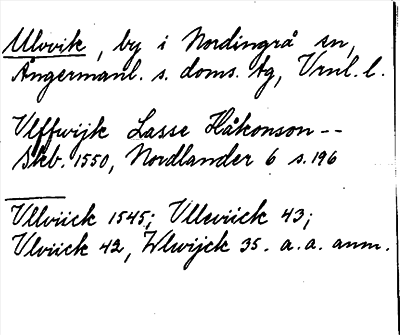 Ulvvik, by i Nordingrå sn,
Ångermanl. s. doms. tg, Vrnl. l.
Ulffwijk Lasse Håkonson --
Skb. 1550, Nordlander 6 s. 196
Ullviick 1545; Ulleviick 43;
Ulviick 42, Wlwijck 35. a. a. anm.